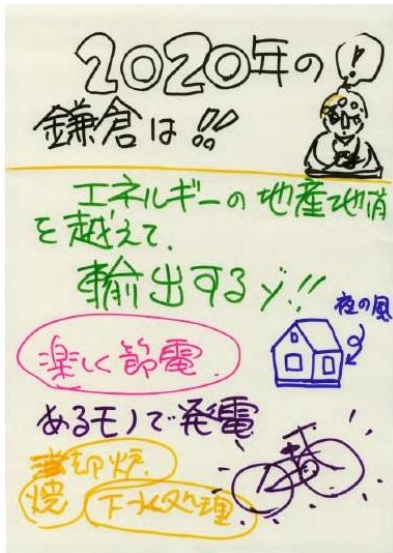 2020年の
!
鎌倉は!!
エネルギーの地産地消
を越えて、
輸出するゾ!!
夜の風
楽しく節電
あるモノで発電
却炉
焼
下水処理